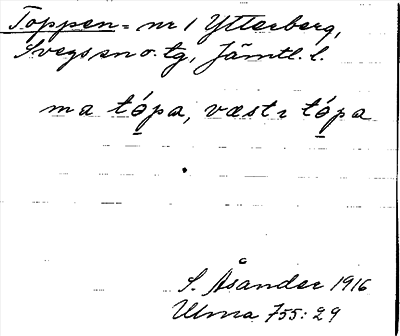 Toppen = nr 1 Ytterberg,
Svegs sn o. tg, Jämtl. l.
ma tó̱pa, væstı tó̱pa
S. Åsander 1916
Ulma 755:29